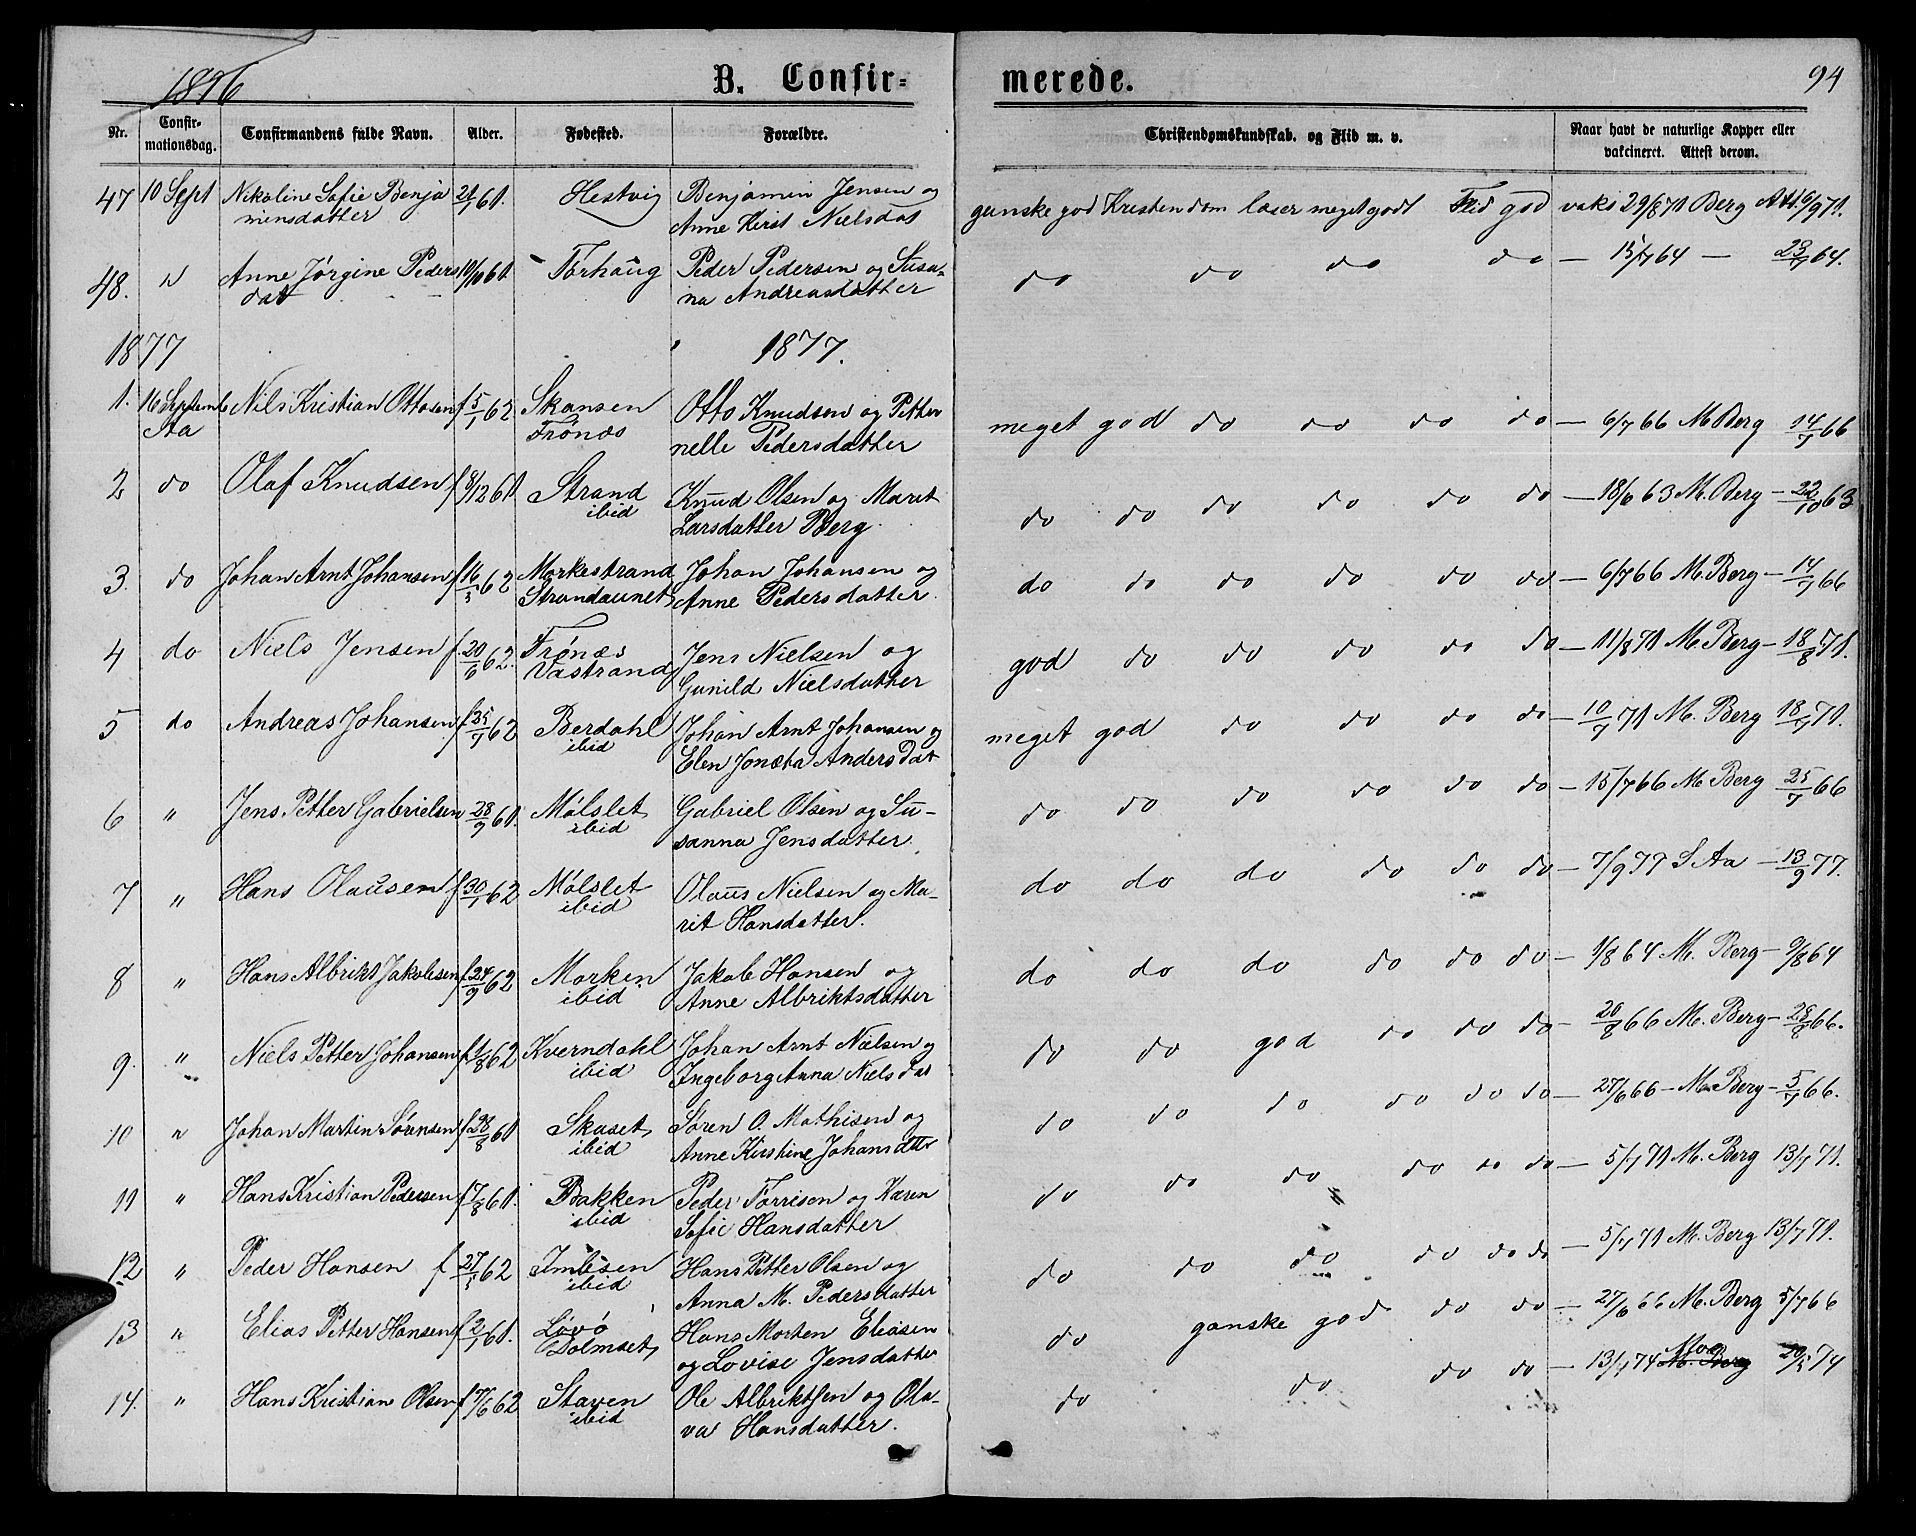 1896
B. Confir-
merede.
94
Nr.
Confir-
mationsdag.
Confirmandens fulde Navn.
Alder.
Fødested.
Forældre.
Christendomskundskab. og Flid m. v.
Naar havt de naturlige Kopper eller
vakcineret. Attest derom.
47 10 Sept Nikoline Sofie Benja 21/1 61. Hestvig Benjamin Jensen og
minsdatter Anne Kirst Nielsdat
ganske god Kristendom læser meget godt Flid god vaks 29/8 71 Berg Att 6/9 71.
48. " Anne Jørgine Peders 10/10 61. Forhaug Peder Pedersen og Susa-
dat na Andreasdatter
do do do do — 15/7 64 — 23/7 64.
1877 1877.
1. 16 Septemb Nils Kristian Ottosen f 5/1 62 Skansen Otto Knudsen og Petter
Frönæs nelle Pedersdatter
meget god do do do do — 6/7 66 M Berg 14/7 66
2 do Olaf Knudsen f 8/12 61. Strand Knud Olsen og Marit
ibid Larsdatter Berg
do do do do do do — 18/6 63 M. Berg — 22/10 63
3. do Johan Arnt Johansen f 16/3 62 Morkestrand Johan Johansen og
Strandaunet Anne Pedersdatter
do do do do do do — 6/7 66 M. Berg — 14/7 66
4 do Niels Jensen f 20/6 62. Frönæs Jens Nielsen og
Vastrand Gunild Nielsdatter
god do do do do do — 11/8 71 M. Berg — 18/8 71.
5 do Andreas Johansen f 25/7 62 Berdahl Johan Arnt Johansen og
ibid Elen Jonæta Anders Dat
meget god do do do do — 10/7 71 M. Berg 18/7 71.
6 " Jens Petter Gabrielsen 28/9 61. Mölslet Gabriel Olsen og Su-
ibid sanna Jensdatter
do do do do do do — 15/7 66 M. Berg 25/7 66
7 " Hans Olausen f 30/1 62 Mölslet Olaus Nielsen og Ma-
ibid rit Hansdatter.
do do do do do do — 7/9 77 S. Aa — 13/9 77.
8 " Hans Albrikt Jakobsen f 24/9 62 Morken Jakob Hansen og
ibid Anne Albriktsdatter
do do do do do do — 1/8 64 M. Berg — 9/8 64
9. " Niels Petter Johansen f 1/8 62 Kverndahl Johan Arnt Nielsen og
ibid Ingeborg Anna Niels dat
do do god do do do — 20/8 66 M. Berg — 28/8 66.
10 " Johan Martin Sörensen f 28/8 61 Skaset Sören O. Mathisen og
ibid Anne Kirstine Johansdtr
do do do do do do — 27/6 66 — M. Berg — 5/7 66.
11 " Hans Kristian Pedersen f 7/8 61. Bakken Peder Forrisen og Karen
ibid Sofie Hansdatter
do do do do do do — 5/7 71 M. Berg 13/7 71.
12 " Peder Hansen f 27/1 62 Imbsen Hans Petter Olsen og
ibid Anna M. Pedersdatter
do do do do do do — 5/7 71 M. Berg 13/7 71.
13 " Elias Petter Hansen f 2/1 61. Lövö Hans Morten Eliasen
Dolmset og Lovise Jensdatter
do ganske god do do — 27/6 66 M. Berg 5/7 66
14. " Hans Kristian Olsen f 7/6 62 Staven Ole Albriktsen og Ola-
ibid va Hansdatter.
do do do do — 13/1 74 M. Berg 20/5 74